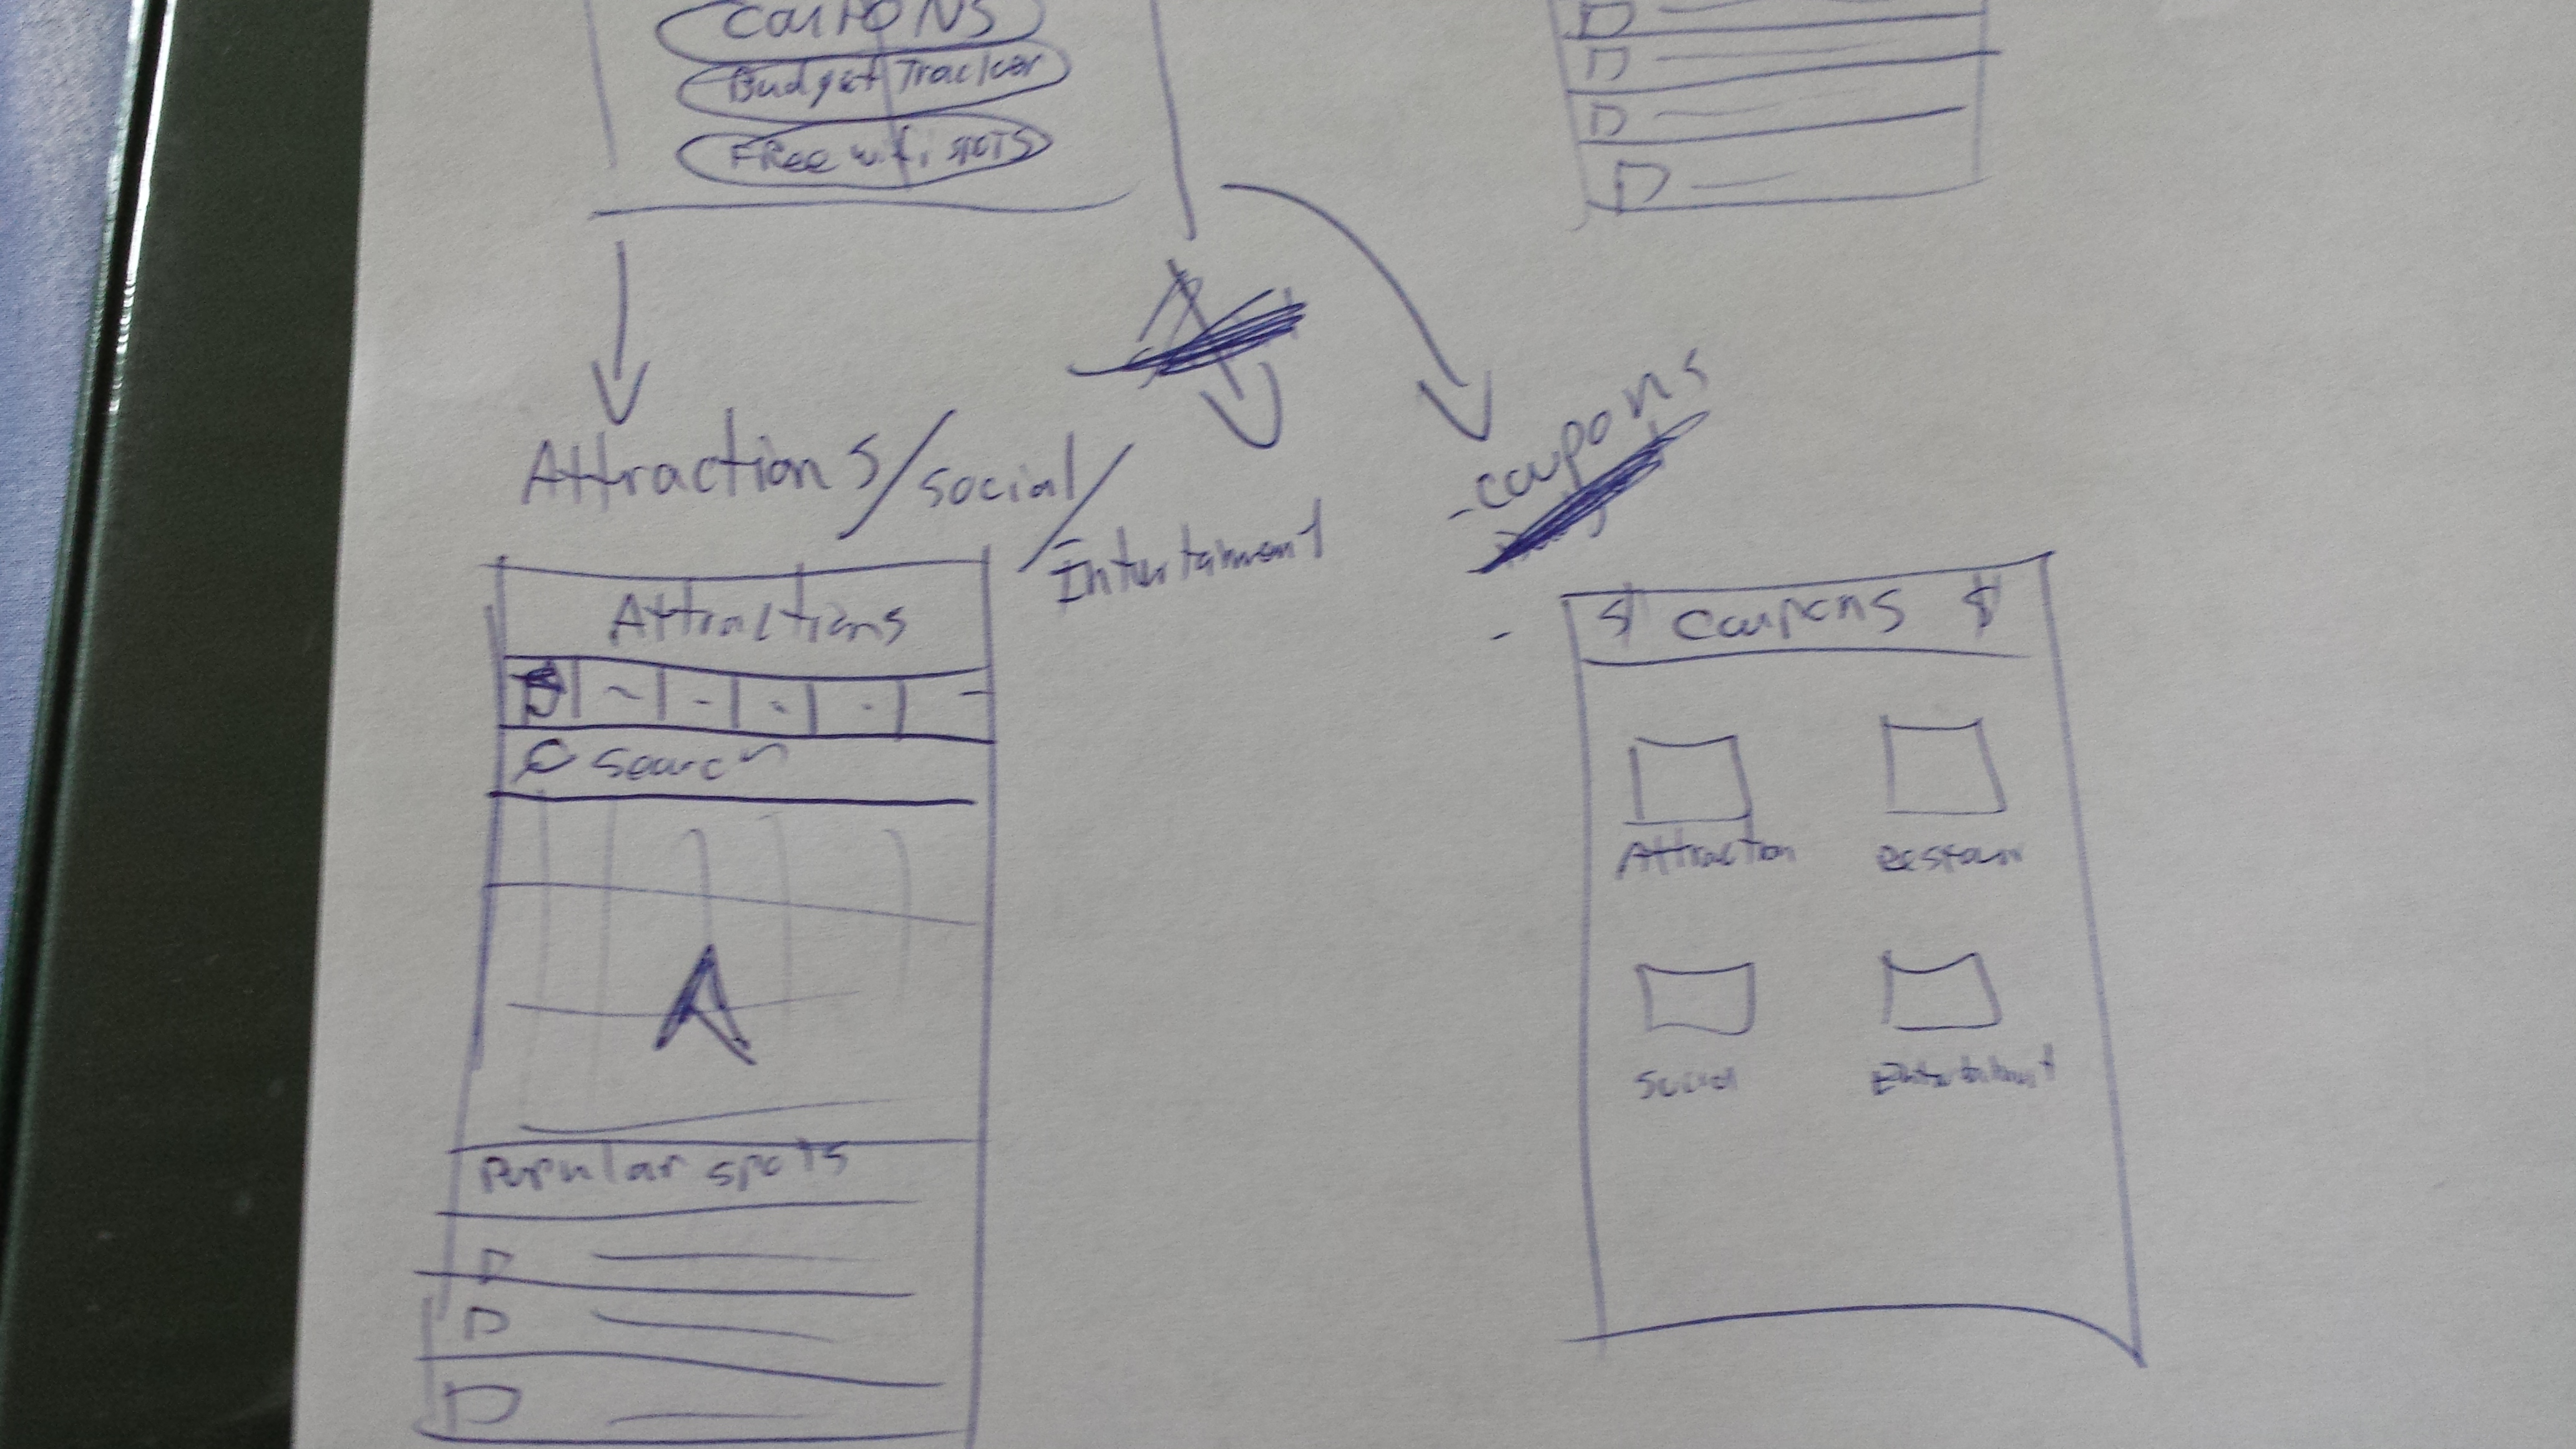 COUPONS
Budget Tracker
FRee wifi spots
Attractions/social/
Entertainment
-coupons
Attractions
Search
Popular spots
$ Coupons $
Attraction
Restaur
Social
Entertainment